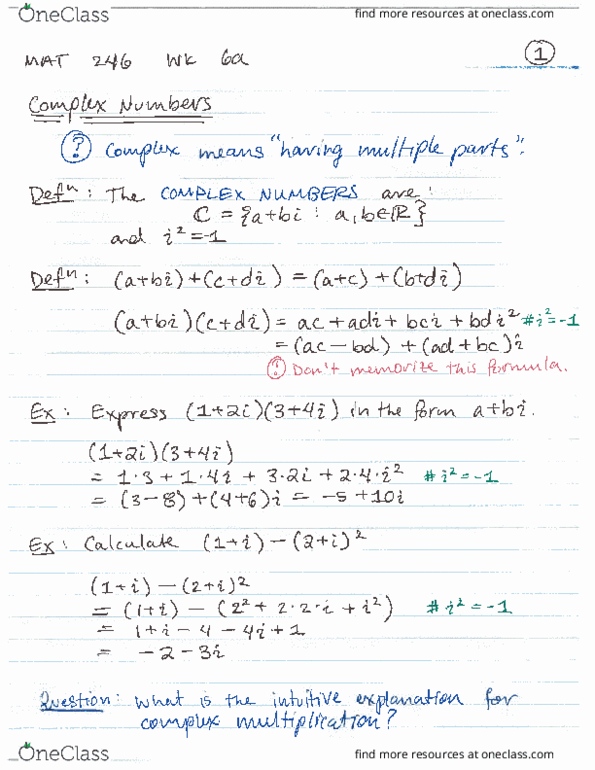 OneClass find more resources at oneclass.com
MAT 246 WK 6a 1
Complex Numbers
? Complex means "having multiple parts".
Defⁿ: The COMPLEX NUMBERS are:
ℂ = {a+bi : a,b∈ℝ}
and i²=-1
Defⁿ: (a+bi)+(c+di) = (a+c)+(b+di)
(a+bi)(c+di) = ac+adi+bci+bdi² #i²=-1
= (ac-bd) + (ad+bc)i
! Don't memorize this formula.
Ex: Express (1+2i)(3+4i) in the form a+bi.
(1+2i)(3+4i)
= 1·3 + 1·4i + 3·2i + 2·4·i² #i²=-1
= (3-8)+(4+6)i = -5+10i
Ex: Calculate (1+i)-(2+i)²
(1+i)-(2+i)²
= (1+i) - (2²+2·2·i+i²) #i²=-1
= 1+i-4-4i+1
= -2-3i
Question: What is the intuitive explanation for
complex multiplication?
OneClass find more resources at oneclass.com